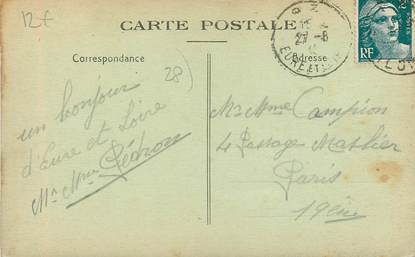 12f
CARTE POSTALE
Correspondance
Adresse
28
27-8
EURE ET
RF
un bonjour
d'Eure et Loire
Mr Mme Pédron
Mr Mme Campion
4 Passage Mathier
Paris
19ème